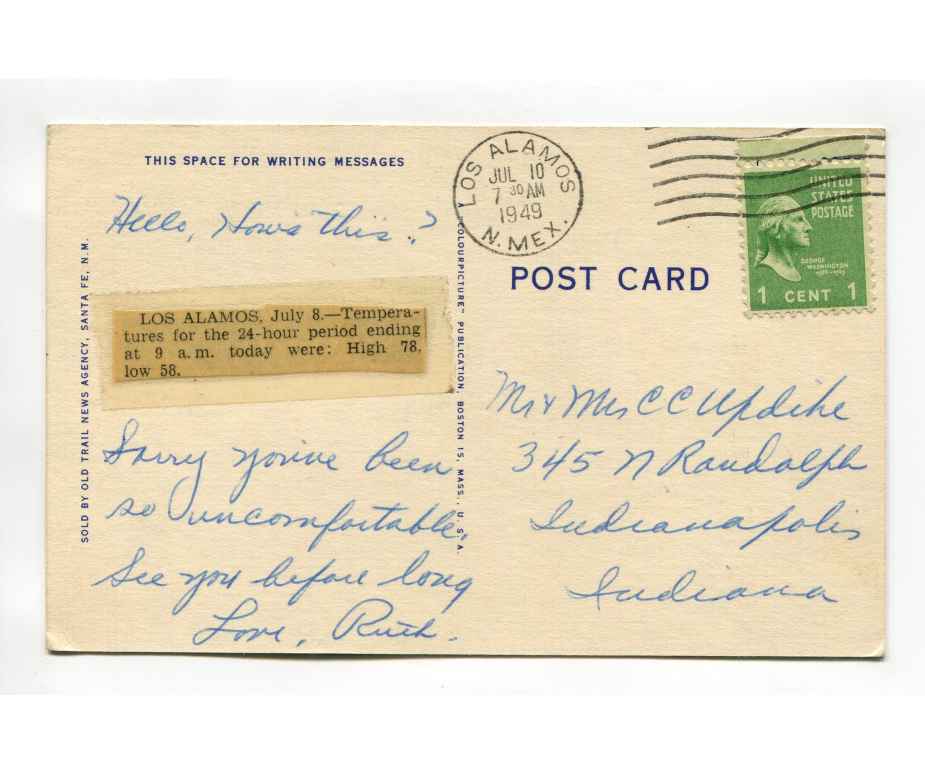 THIS SPACE FOR WRITING MESSAGES
Hello, Hows this?
LOS ALAMOS, July 8.—Tempera-
tures for the 24-hour period ending
at 9 a.m. today were: High 78,
low 58.
Sorry you've been
so uncomfortable.
See you before long
Love, Ruth.
SOLD BY OLD TRAIL NEWS AGENCY, SANTA FE, N.M.
COLOURPICTURE" PUBLICATION, BOSTON 15, MASS., U.S.A.
LOS ALAMOS
JUL 10
7 30 AM
1949
N. MEX.
UNITED
STATES
POSTAGE
GEORGE
WASHINGTON
1 CENT 1
POST CARD
Mr & Mrs C C Updike
345 N Randolph
Indianapolis
Indiana